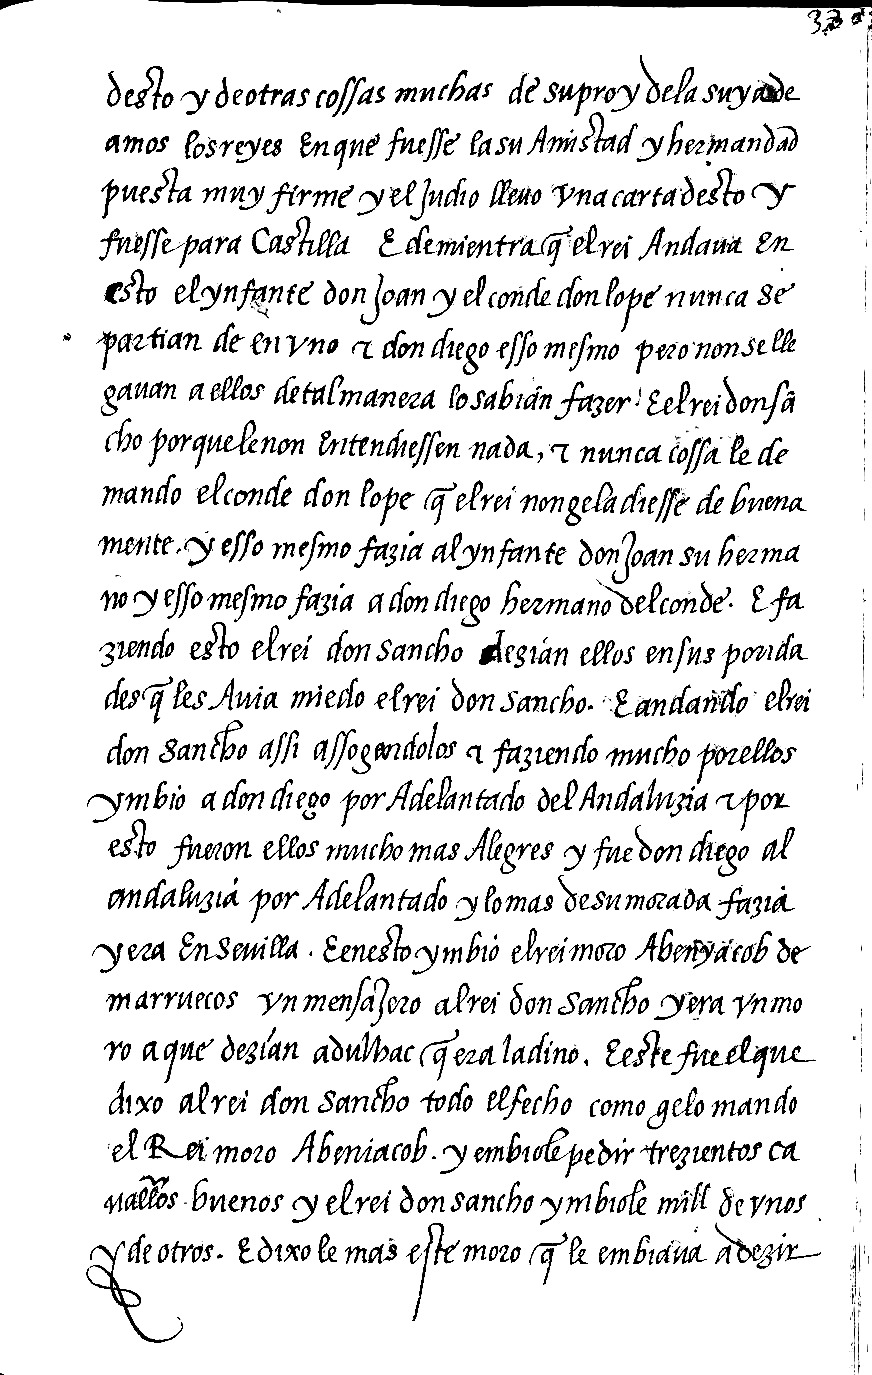 desto y de otras cossas muchas de su pro y de la suya de
amos los reyes En que fuesse la su Amistad y hermandad
puesta muy firme y el Judio lleuo vna carta desto y
fuesse para Castilla E demientra q̃ el rei Andaua En
esto el ynfante don Joan y el conde don lope nunca se
partian de en vno τ don diego esso mesmo pero non se lle
gauan a ellos de tal manera lo sabian fazer. E el rei don sã
cho porque le non Entendiessen nada, τ nunca cossa le de
mando el conde don lope q̃ el rei non gela diesse de buena
mente. y esso mesmo fazia al ynfante don Joan su herma
no y esso mesmo fazia a don diego hermano del conde. E fa
ziendo esto el rei don sancho dezian ellos en sus porida
des q̃ les Auia miedo el rei don sancho. E andando el rei
don Sancho assi assogandolos τ faziendo mucho por ellos
ymbio a don diego por Adelantado del Andaluzia τ por
esto fueron ellos mucho mas Alegres y fue don diego al
andaluzia por Adelantado y lo mas de su morada fazia
y era En Seuilla. E en esto ymbio el rei moro Abenyacob de
marruecos vn mensaJero al rei don Sancho y era vn mo
ro a que dezian adulhac q̃ era ladino. E este fue el que
dixo al rei don Sancho todo el fecho como gelo mando
el Rei moro Abeniacob. y embiole pedir trezientos ca
uallos buenos y el rei don sancho ymbiole mill de vnos
y de otros. E dixo le mas este moro q̃ le embiaua a dezir